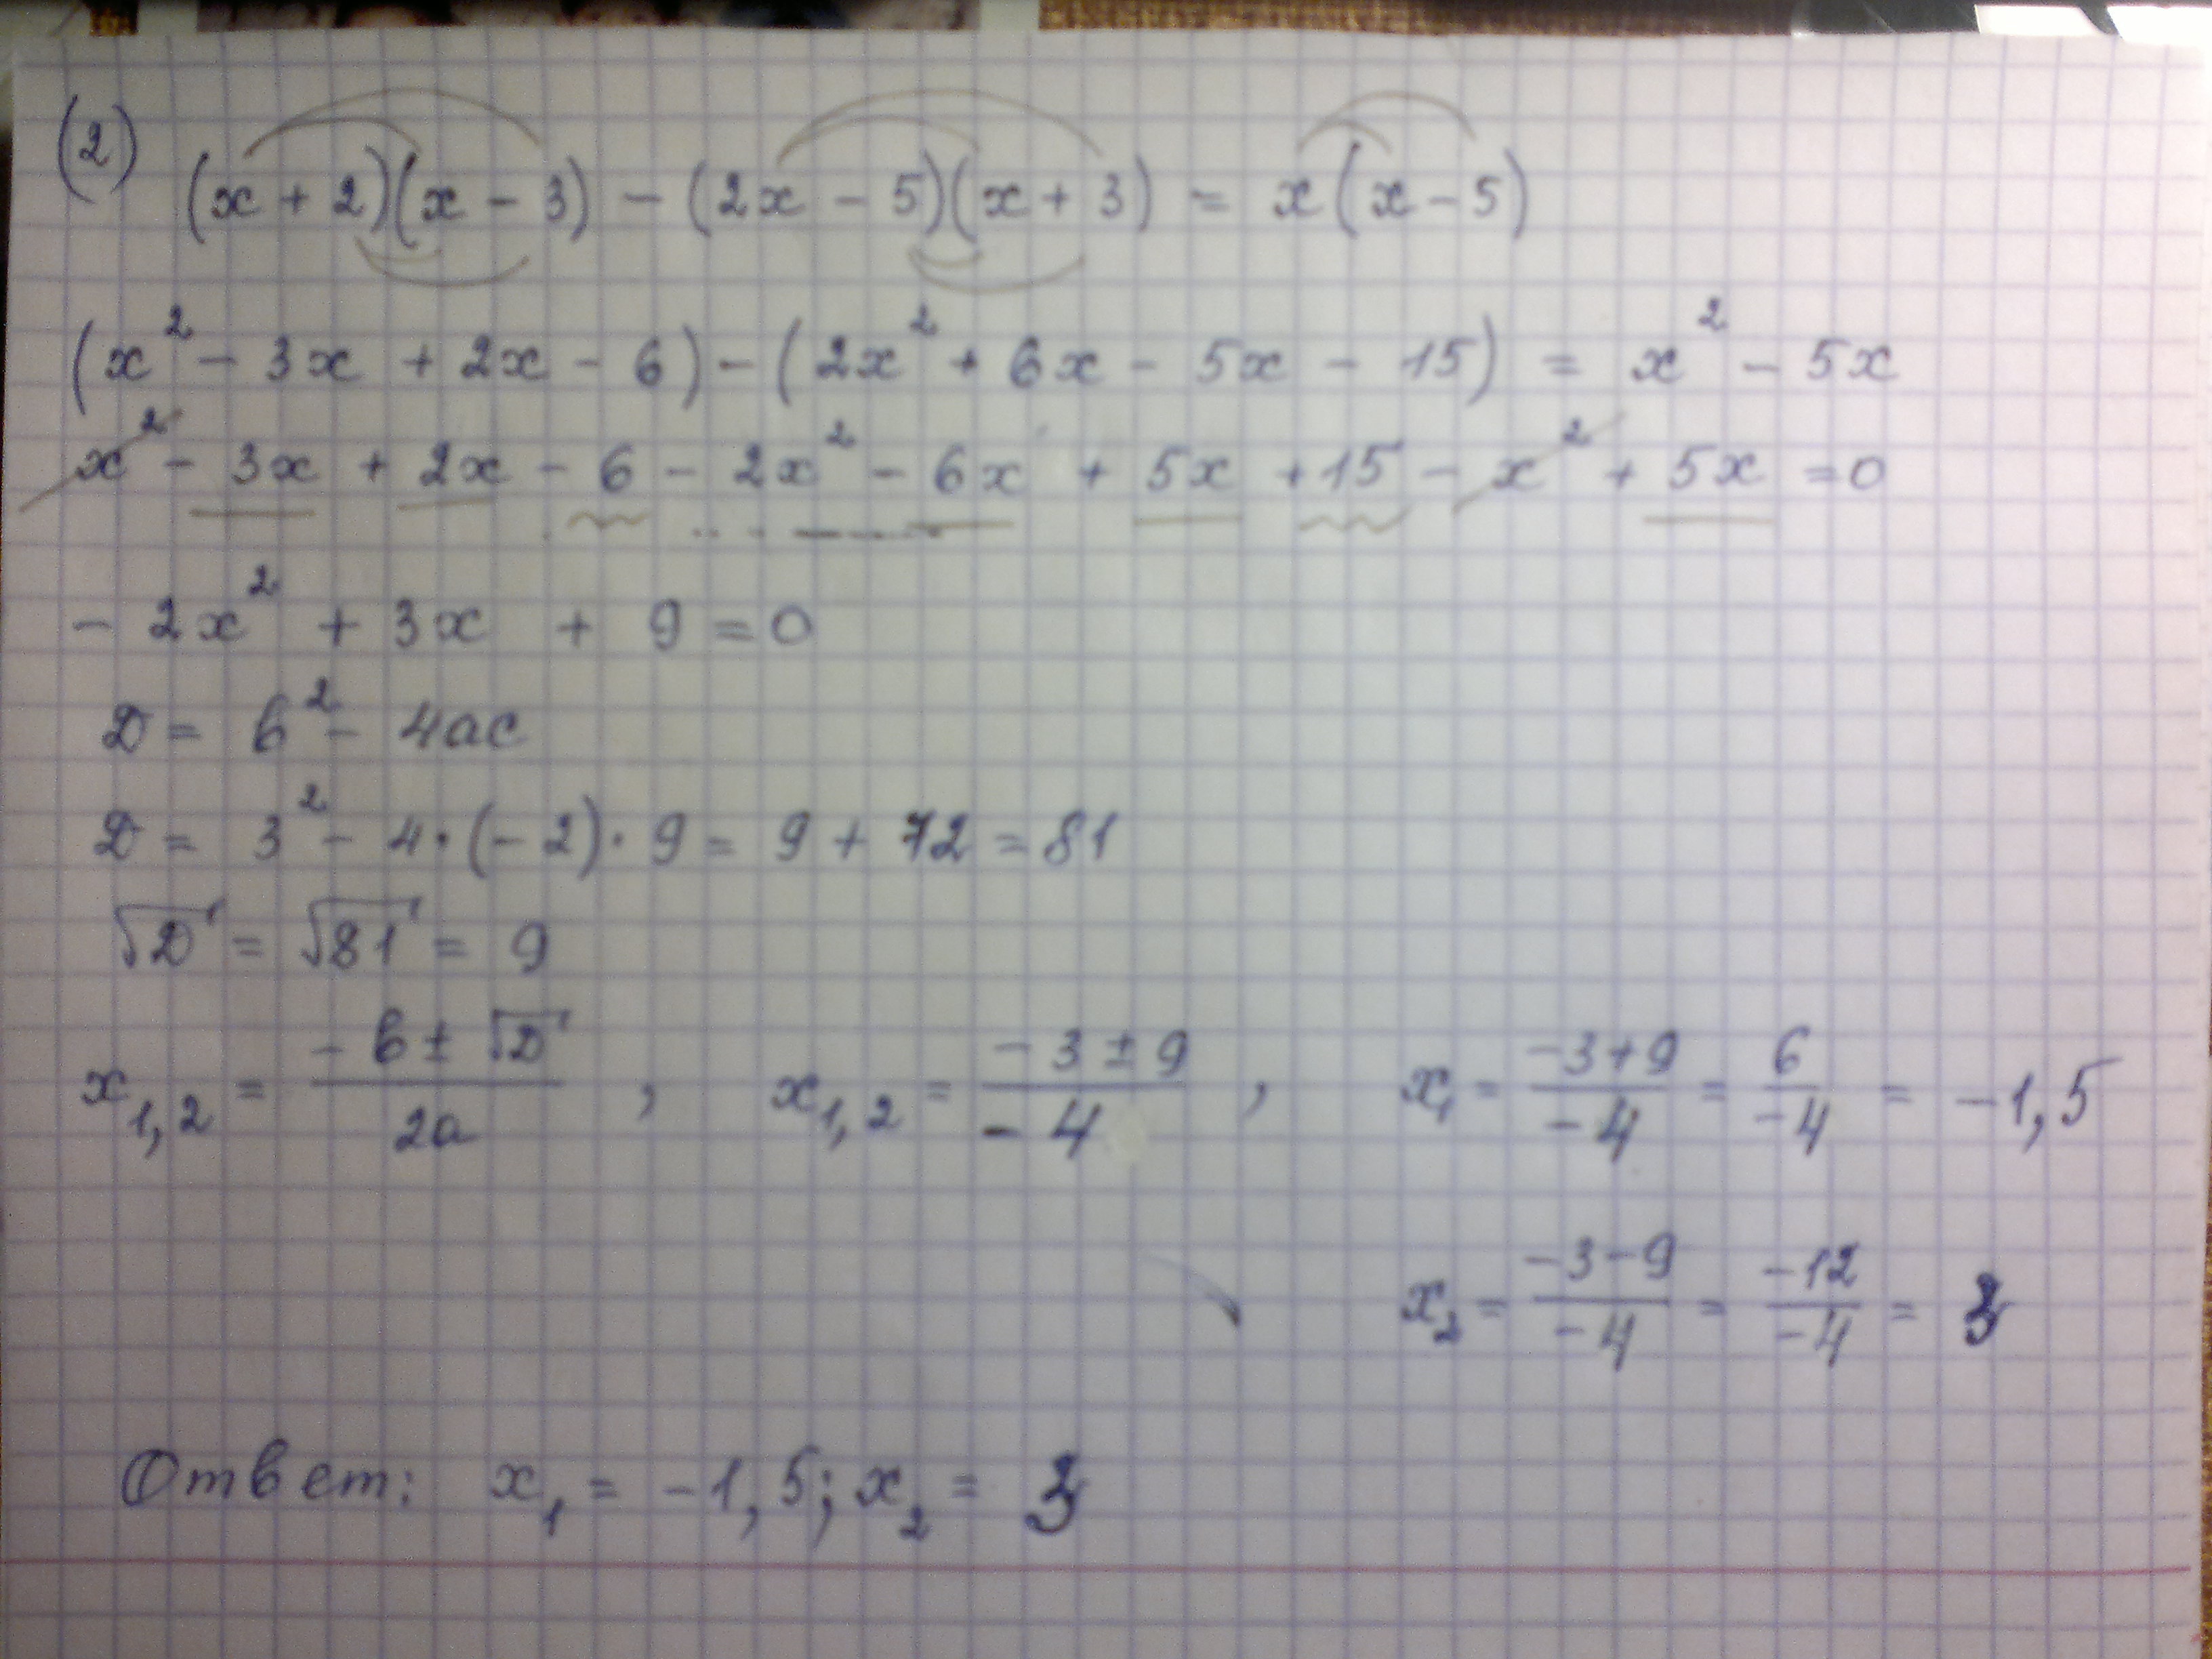 (2) (x + 2)(x - 3) - (2x - 5)(x + 3) = x(x - 5)
(x² - 3x + 2x - 6) - (2x² + 6x - 5x - 15) = x² - 5x
x² - 3x + 2x - 6 - 2x² - 6x + 5x + 15 - x² + 5x = 0
- 2x² + 3x + 9 = 0
D = b² - 4ac
D = 3² - 4·(-2)·9 = 9 + 72 = 81
√D = √81 = 9
x₁,₂ = (-b ± √D)/(2a) , x₁,₂ = (-3 ± 9)/(-4) , x₁ = (-3+9)/(-4) = 6/(-4) = -1,5
x₂ = (-3-9)/(-4) = (-12)/(-4) = 3
Ответ: x₁ = -1,5; x₂ = 3